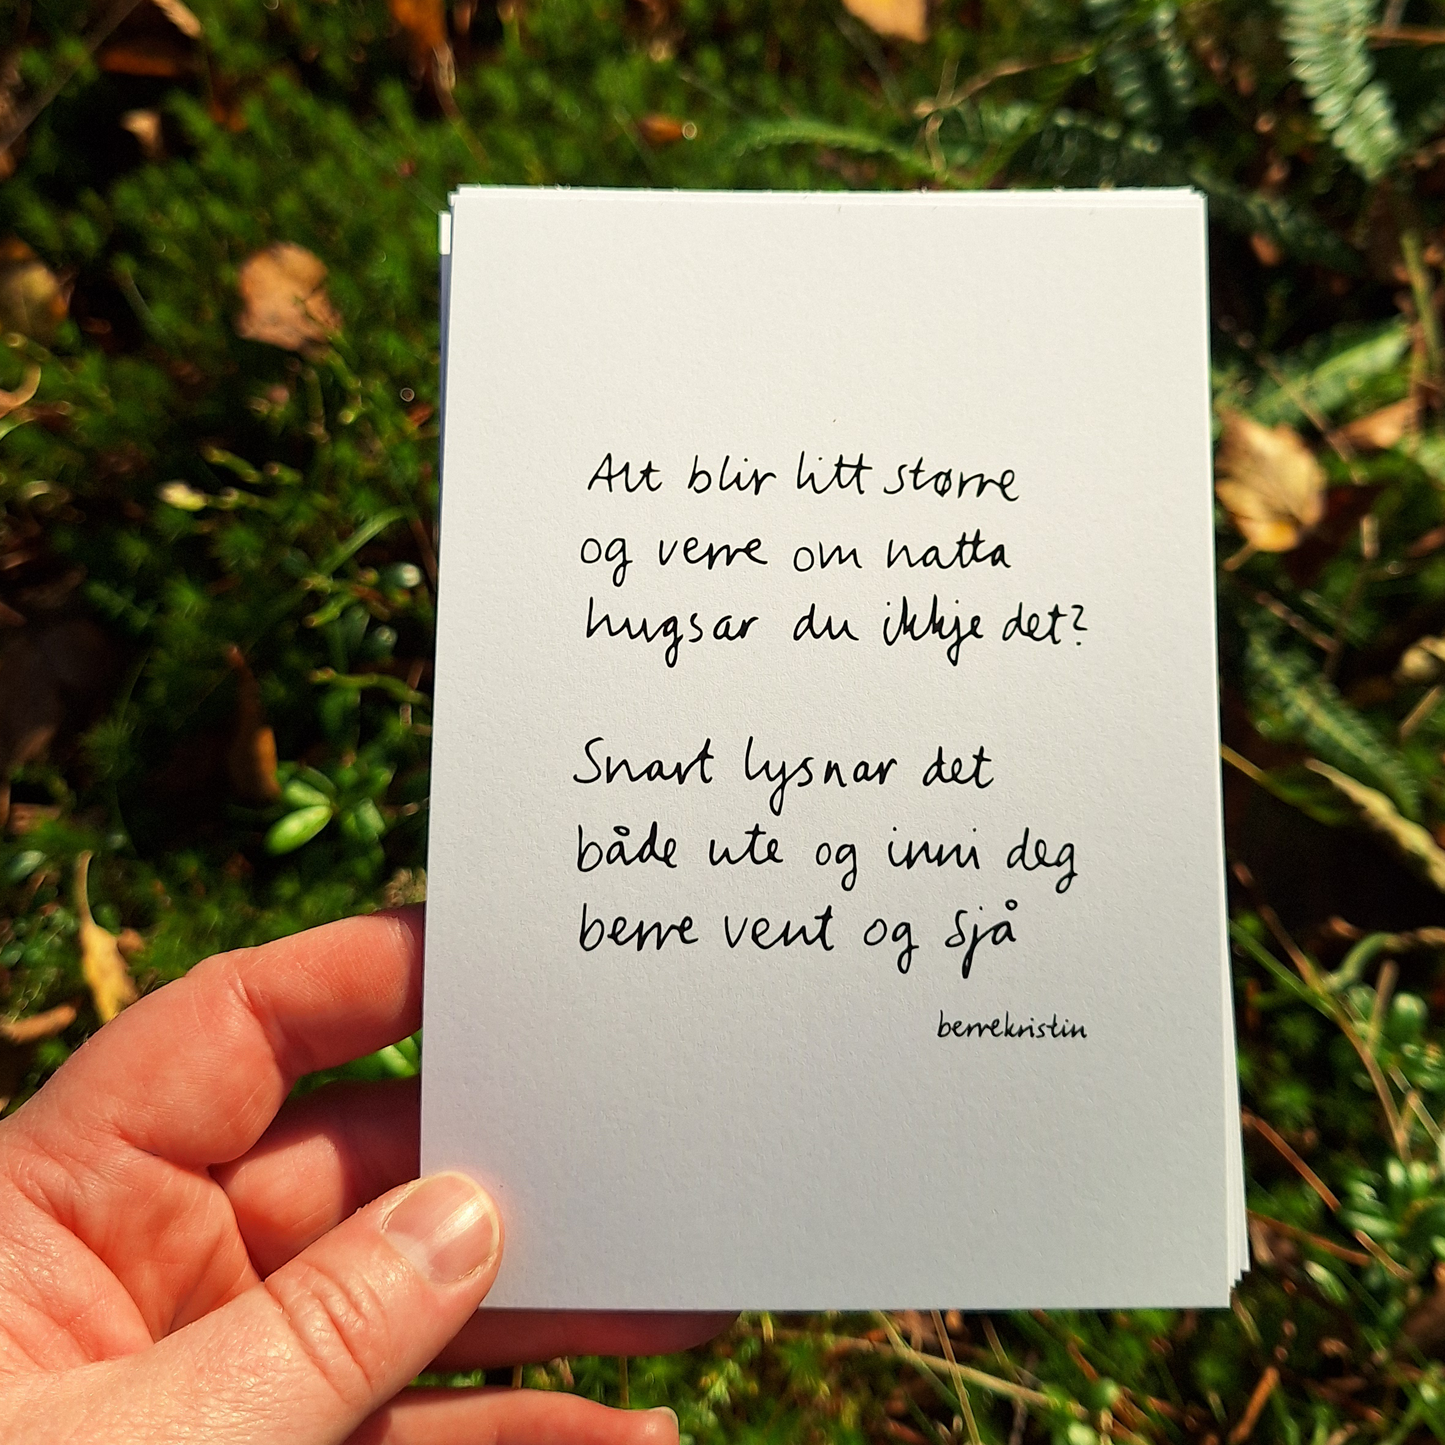 Alt blir litt større
og verre om natta
hugsar du ikkje det?
Snart lysnar det
både ute og inni deg
berre vent og sjå
berrekristin